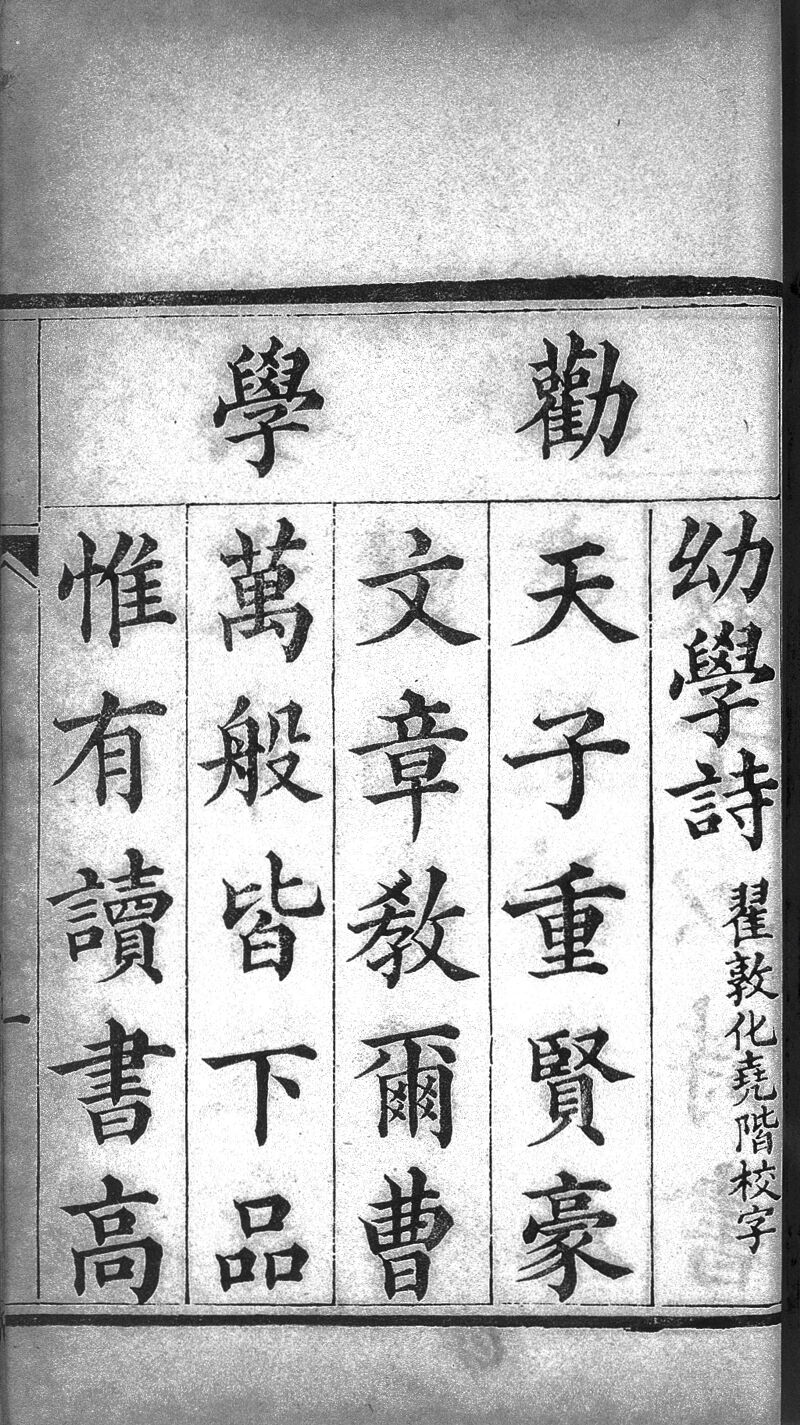 勸學
幼學詩 翟敦化堯階校字
天子重賢豪
文章敎爾曹
萬般皆下品
惟有讀書高
一